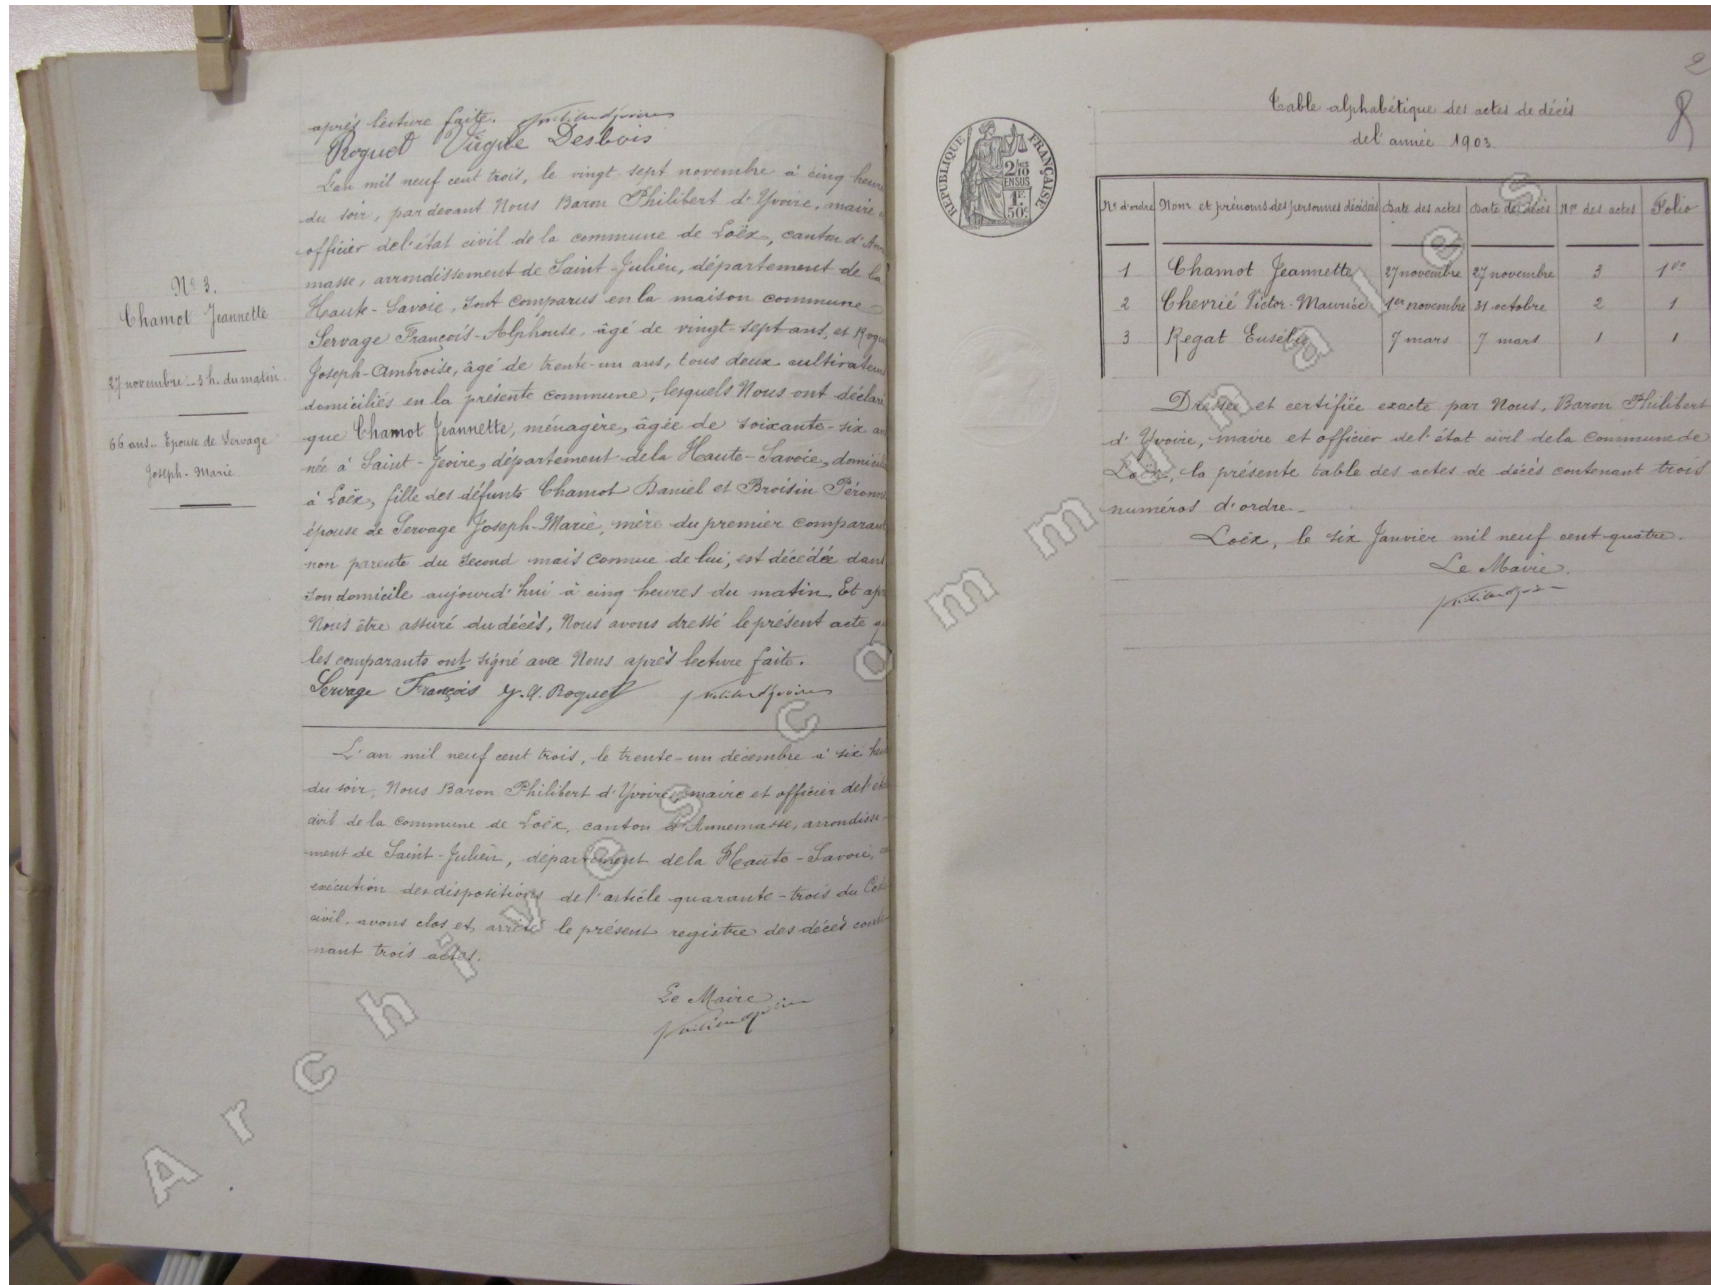 après lecture faite.
Roquet Vigne Desbois
L'an mil neuf cent trois, le vingt sept novembre à cinq heure
du soir, par devant Nous Baron Philibert d'Yvoire, maire
officier de l'état civil de la commune de Loëx, canton d'Ann
masse, arrondissement de Saint-Julien, département de la
Haute-Savoie, sont comparus en la maison commune
Servage François-Alphonse, âgé de vingt-sept ans, et Roqu
Joseph-Ambroise, âgé de trente-un ans, tous deux cultivateurs
domiciliés en la présente commune, lesquels Nous ont déclaré
que Chamot Jeannette, ménagère, âgée de soixante-six an
née à Saint-Jeoire, département de la Haute-Savoie, domicili
à Loëx, fille des défunts Chamot Daniel et Broisin Péronn
épouse de Servage Joseph-Marie, mère du premier comparant
non parente du second mais connue de lui, est décédée dans
son domicile aujourd'hui à cinq heures du matin. Et apr
Nous être assuré du décès, Nous avons dressé le présent acte q
les comparants ont signé avec Nous après lecture faite.
Servage François J. A. Roquet
N° 3.
Chamot Jeannette
27 novembre - 5 h. du matin.
66 ans - Epouse de Servage
Joseph-Marie
L'an mil neuf cent trois, le trente-un décembre à six heu
du soir, Nous Baron Philibert d'Yvoire, maire et officier de l'ét
civil de la commune de Loëx, canton d'Annemasse, arrondisse-
ment de Saint-Julien, département de la Haute-Savoie, en
exécution des dispositions de l'article quarante-trois du Code
civil, avons clos et arrêté le présent registre des décès conte-
nant trois actes.
Le Maire
2
8
Table alphabétique des actes de décès
de l'année 1903
RÉPUBLIQUE FRANÇAISE
2/10 EN SUS
1F 50c
N° d'ordre Nom et prénoms des personnes décédées Date des actes Date des décès Nos des actes Folio
1 Chamot Jeannette 27 novembre 27 novembre 3 1 vo
2 Chevrié Victor-Maurice 1er novembre 31 octobre 2 1
3 Regat Eusébie 7 mars 7 mars 1 1
Dressée et certifiée exacte par Nous, Baron Philibert
d'Yvoire, maire et officier de l'état civil de la Commune de
Loëx, la présente table des actes de décès contenant trois
numéros d'ordre.
Loëx, le six Janvier mil neuf cent quatre.
Le Maire.
Archives communales